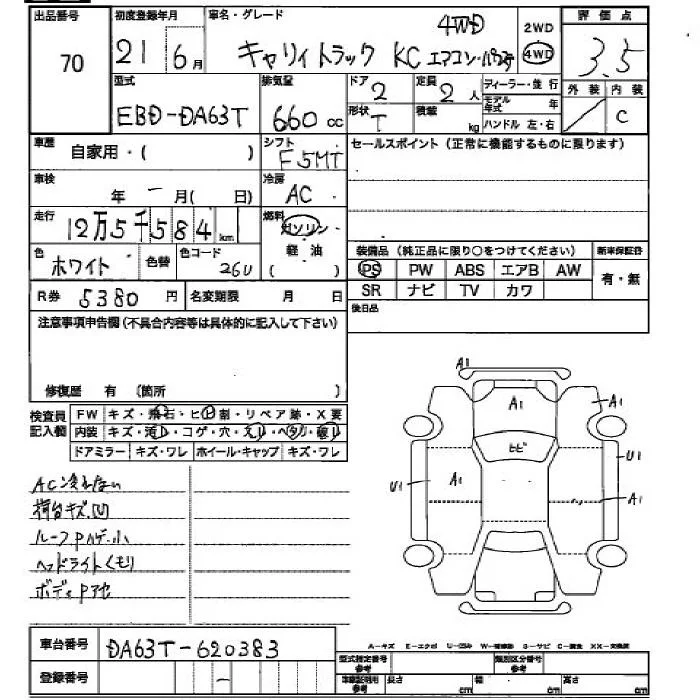 出品番号 初度登録年月 車名・グレード 評価点
70 21 6月 キャリイトラック KC エアコン・パワステ 4WD 2WD 4WD 3.5
外装 内装
C
型式 排気量 ドア 定員 ディーラー・並行
EBD-DA63T 660cc 2 2人 モデル年式 年
形状 積載
T kg ハンドル 左・右
車歴 自家用・( ) シフト F5MT セールスポイント(正常に機能するものに限ります)
車検 年 - 月( 日) 冷房 AC
走行 12万5千584km 燃料 ガソリン
軽油
( )
色 ホワイト 色替 色コード 26U
装備品(純正品に限り○をつけてください) 新車保証書
PS PW ABS エアB AW 有・無
SR ナビ TV カワ
R券 5380円 名変期限 月 日 後日品
注意事項申告欄(不具合内容等は具体的に記入して下さい)
修復歴 有 (箇所 )
検査員記入欄 FW キズ・飛石・ヒビ割・リペア跡・X要
内装 キズ・汚レ・コゲ・穴・スレ・ヘタリ・破レ
ドアミラー キズ・ワレ ホイール・キャップ キズ・ワレ
AC冷えない
荷台キズ凹
ルーフPハゲ小
ヘッドライトくもり
ボディPアセ
A1
A1
A1
ヒビ
U1
U1
A1
A1
車台番号 DA63T-620383
登録番号 -
A-キズ E-エクボ U-凹み W-補修跡 S-サビ C-腐食 XX-交換済
型式指定番号 参考 類別区分番号 参考
車検証明用 参考 長さ cm 幅 cm 高さ cm